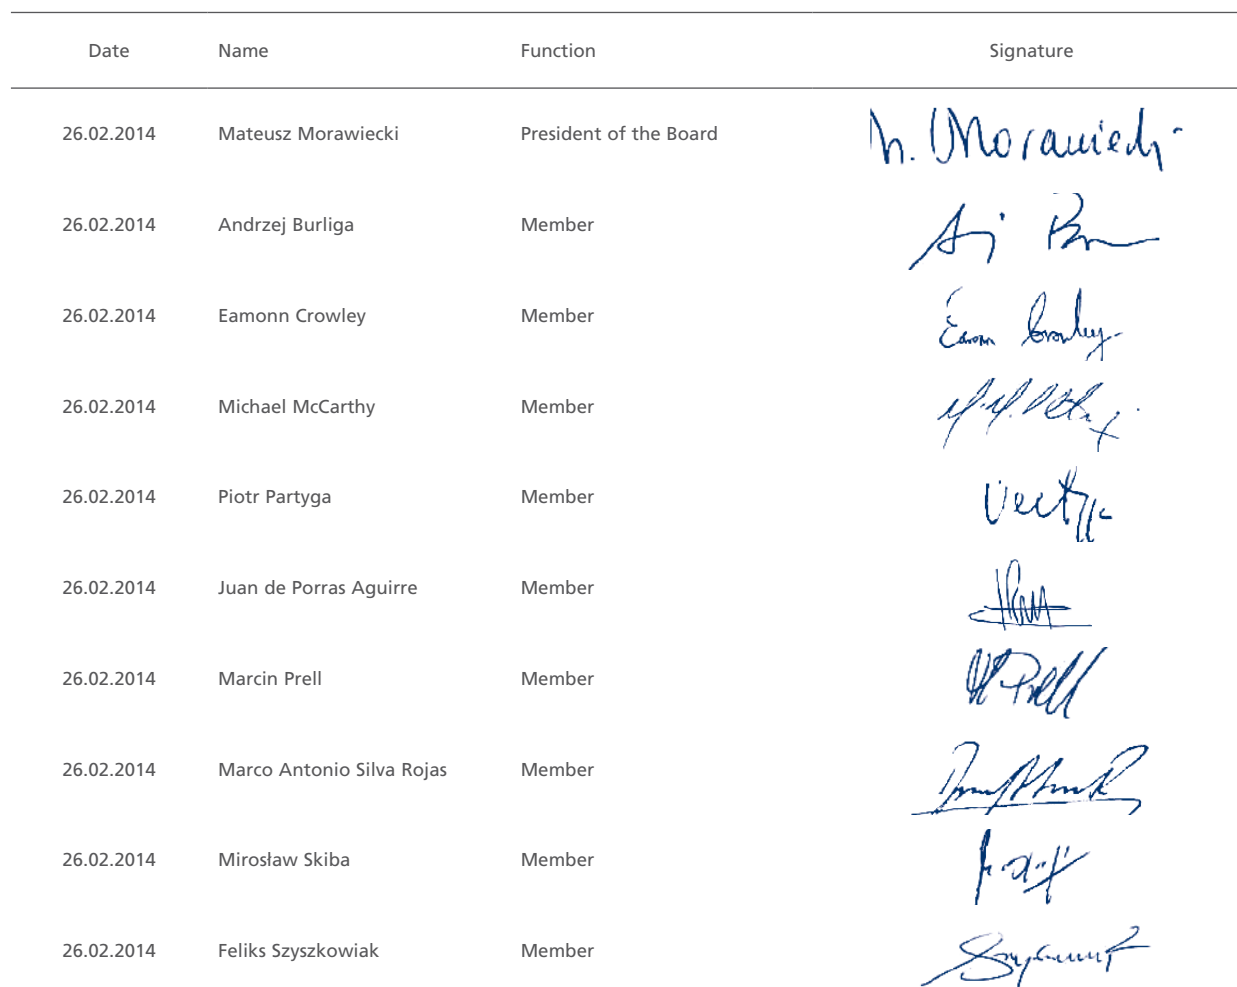 Date Name Function Signature
26.02.2014 Mateusz Morawiecki President of the Board M. Morawiecki
26.02.2014 Andrzej Burliga Member
26.02.2014 Eamonn Crowley Member Eamonn Crowley
26.02.2014 Michael McCarthy Member
26.02.2014 Piotr Partyga Member
26.02.2014 Juan de Porras Aguirre Member
26.02.2014 Marcin Prell Member M Prell
26.02.2014 Marco Antonio Silva Rojas Member
26.02.2014 Mirosław Skiba Member
26.02.2014 Feliks Szyszkowiak Member